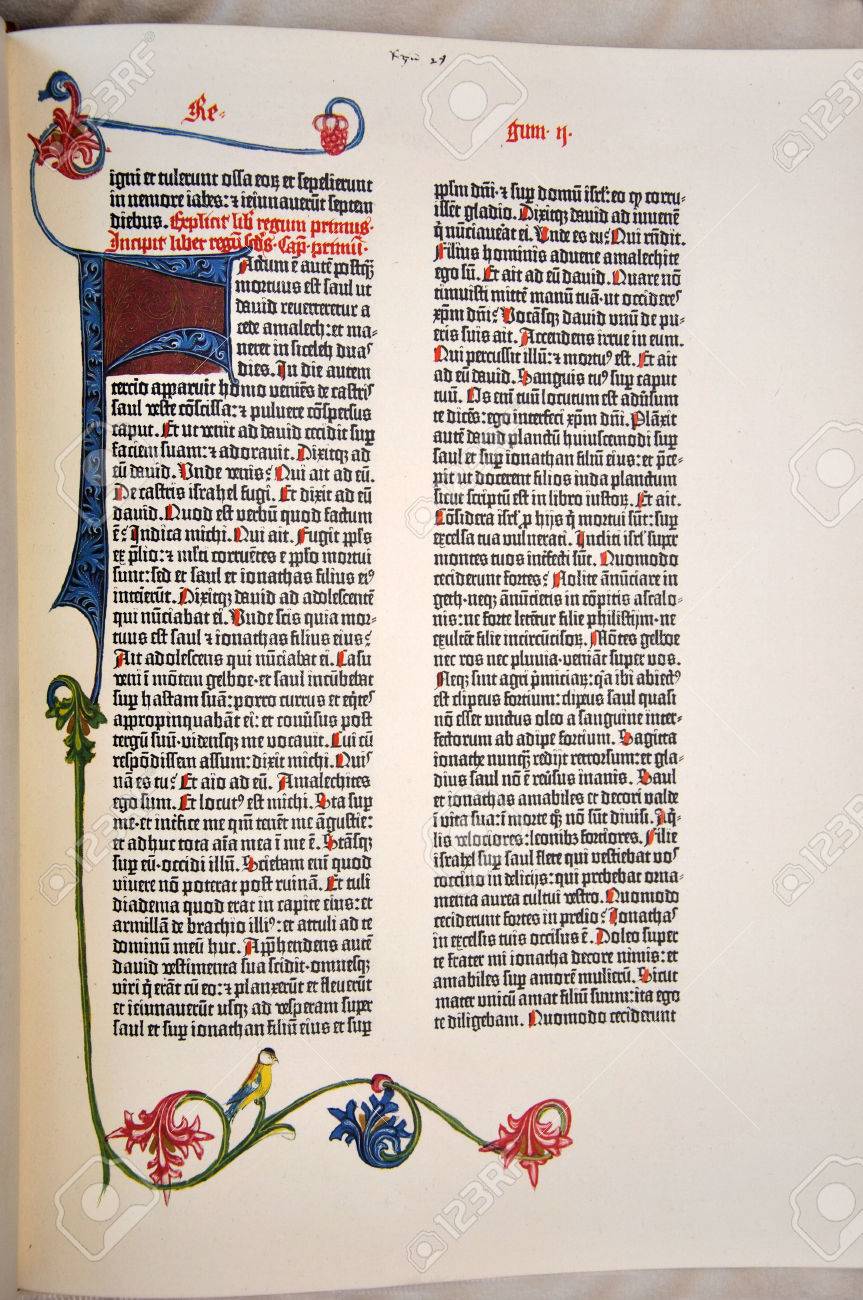 Re-
gum · ij ·
igni et tulerunt ossa eoꝝ et sepelierunt
in nemore iabes: ⁊ ieiunauerūt septem
diebus. Explicit lib̄ regum primus.
Incipit liber regū sc̄ds. Cap̄. primū.
Factum ē autē postqꝫ
mortuus est saul ut
dauid reuerteretur a
cede amalech: et ma-
neret in siceleh duaꝰ
dies. In die autem
tercio apparuit homo veniēs de castris
saul veste cōscissa: ⁊ puluere cōspersus
caput. Et ut venit ad dauid cecidit sup̄
faciem suam: ⁊ adorauit. Dixitqꝫ ad
eū dauid. Unde venis? Qui ait ad eū.
De castris israhel fugi. Et dixit ad eū
dauid. Quod est verbū quod factum
ē? Indica michi. Qui ait. Fugit pp̄ls
ex p̄lio: ⁊ ml̄ti corruētes e pp̄lo mortui
sunt: sed et saul et ionathas filius eiꝰ
interierūt. Dixitqꝫ dauid ad adolescentē
qui nūciabat ei. Unde scis quia mor-
tuus est saul ⁊ ionathas filius eius?
Ait adolescens qui nūciabat ei. Casu
veni ī mōtem gelboe: et saul incūbebat
sup̄ hastam suā: porro currus et eq̄teꝰ
appropinquabāt ei: et cōuersus post
tergū suū · vidensqꝫ me vocauit. Cui cū
respōdissem assum: dixit michi. Qui
nā es tu? Et aio ad eū. Amalechites
ego sum. Et locutꝰ est michi. Sta sup̄
me · et īterfice me qm̄ tenēt me āgustie:
et adhuc tota aīa mea ī me ē. Stāsqꝫ
sup̄ eū · occidi illū. Sciebam enī quod
viuere nō poterat post ruinā. Et tuli
diadema quod erat in capite eius: et
armillā de brachio illiꝰ: et attuli ad te
dominū meū huc. Apprehendens autē
dauid vestimenta sua scidit · omnesqꝫ
viri q̄ erāt cū eo: ⁊ planxerūt et fleuerūt
et ieiunauerūt usqꝫ ad vesperam super
saul et sup̄ ionathan filiū eius et sup̄
pp̄lm dn̄i · ⁊ sup̄ domū isrl̄: eo qꝫ corru-
issēt gladio. Dixitqꝫ dauid ad iuuenē
q̄ nūciauerat ei. Unde es tu? Qui rn̄dit.
Filius hominis aduene amalechite
ego sū. Et ait ad eū dauid. Quare nō
timuisti mittere manū tuā · ut occidereꝰ
xp̄m dn̄i? Vocāsqꝫ dauid vnū de pu-
eris suis ait. Accedens irrue in eum.
Qui percussit illū: ⁊ mortuꝰ est. Et ait
ad eū dauid. Sanguis tuꝰ sup̄ caput
tuū. Os enī tuū locutum est aduersum
te dicēs: ego interfeci xp̄m dn̄i. Plāxit
autē dauid planctū huiuscemodi sup̄
saul et sup̄ ionathan filiū eius: et p̄ce-
pit ut docerent filios iuda planctum
sicut scriptū est in libro iustoꝝ. Et ait.
Cōsidera isrl̄ p̄ hijs q̄ mortui sūt: sup̄
excelsa tua vulnerati. Incliti isrl̄ super
montes tuos īterfecti sūt. Quomodo
ceciderunt fortes? Nolite ānūciare in
geth · neqꝫ ānūcietis in cōpitis ascalo-
nis: ne forte letētur filie philistijm · ne
exultēt filie incircūcisoꝝ. Mōtes gelboe
nec ros nec pluuia · veniāt super vos.
Neqꝫ sint agri p̄miciaꝝ: q̄a ibi abiectꝰ
est clipeus fortium: clipeus saul quasi
nō esset vnctus oleo a sanguine inter-
fectorum ab adipe fortium. Sagitta
ionathe nunqꝫ redijt retrorsum: et gla-
dius saul nō ē reūsus inanis. Saul
et ionathas amabiles et decori valde
ī vita sua: ī morte qꝫ nō sūt diuisi. Aq̄-
lis velociores: leonibꝫ forciores. Filie
israhel sup̄ saul flete qui vestiebat voꝰ
coccino in delicijs: qui prebebat orna-
menta aurea cultui vestro. Quomodo
ceciderunt fortes in prelio? Ionathaꝰ
in excelsis tuis occisus ē. Doleo super
te frater mi ionatha decore nimis: et
amabiles sup̄ amorē mulierū. Sicut
mater vnicū amat filiū suum: ita ego
te diligebam. Quomodo ceciderunt
123RF